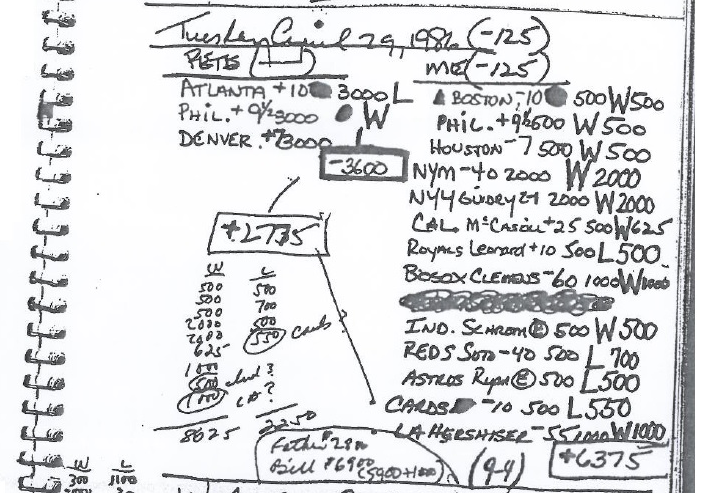 Tuesday April 29, 1986 (-125)
PETE'S
ME (-125)
ATLANTA +10 3000 L
PHIL. +9½ 3000 W
DENVER. +7 3000
-3600
+2735
BOSTON -10 500 W 500
PHIL. +9½ 500 W 500
HOUSTON -7 500 W 500
NYM -40 2000 W 2000
NYY GUIDRY 2000 W 2000
CAL. McCASKILL +25 500 W 625
Royals Leonard +10 500 L 500
BOSOX CLEMENS -60 1000 W 1000
IND. SCHROM E 500 W 500
REDS Soto -40 500 L 700
ASTROS Ryan E 500 L 500
CARDS -10 500 L 550
LA HERSHISER -55 1000 W 1000
+6375
W L
500 500
500 700
500 500
2000 550 Cards?
2000
625
1000
500 Ind?
1000 LA?
8625 2250
Bill $6900 (5900+1000)
(9-4)
W L
300 1100